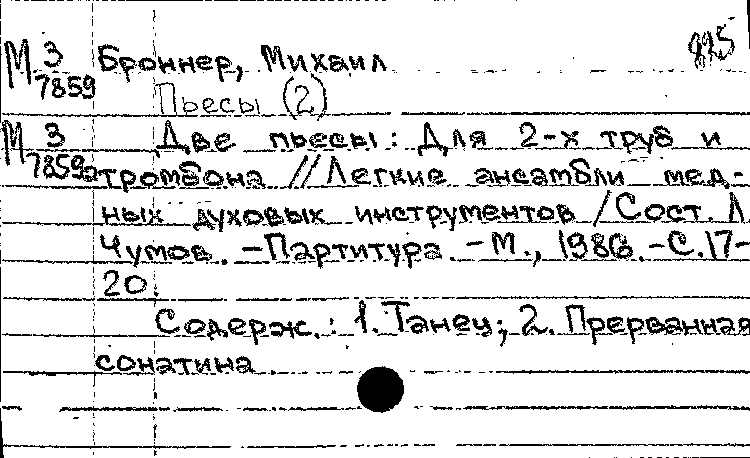 М 3 Броннер, Михаил 825
7859
Пьесы (2)
М 3 Две пьесы: Для 2-х труб и
7859а тромбона // Легкие ансамбли мед-
ных духовых инструментов / Сост. Л.
Чумов. - Партитура. - М., 1986. - С. 17-
20.
Содерж.: 1. Танец; 2. Прерванная
сонатина